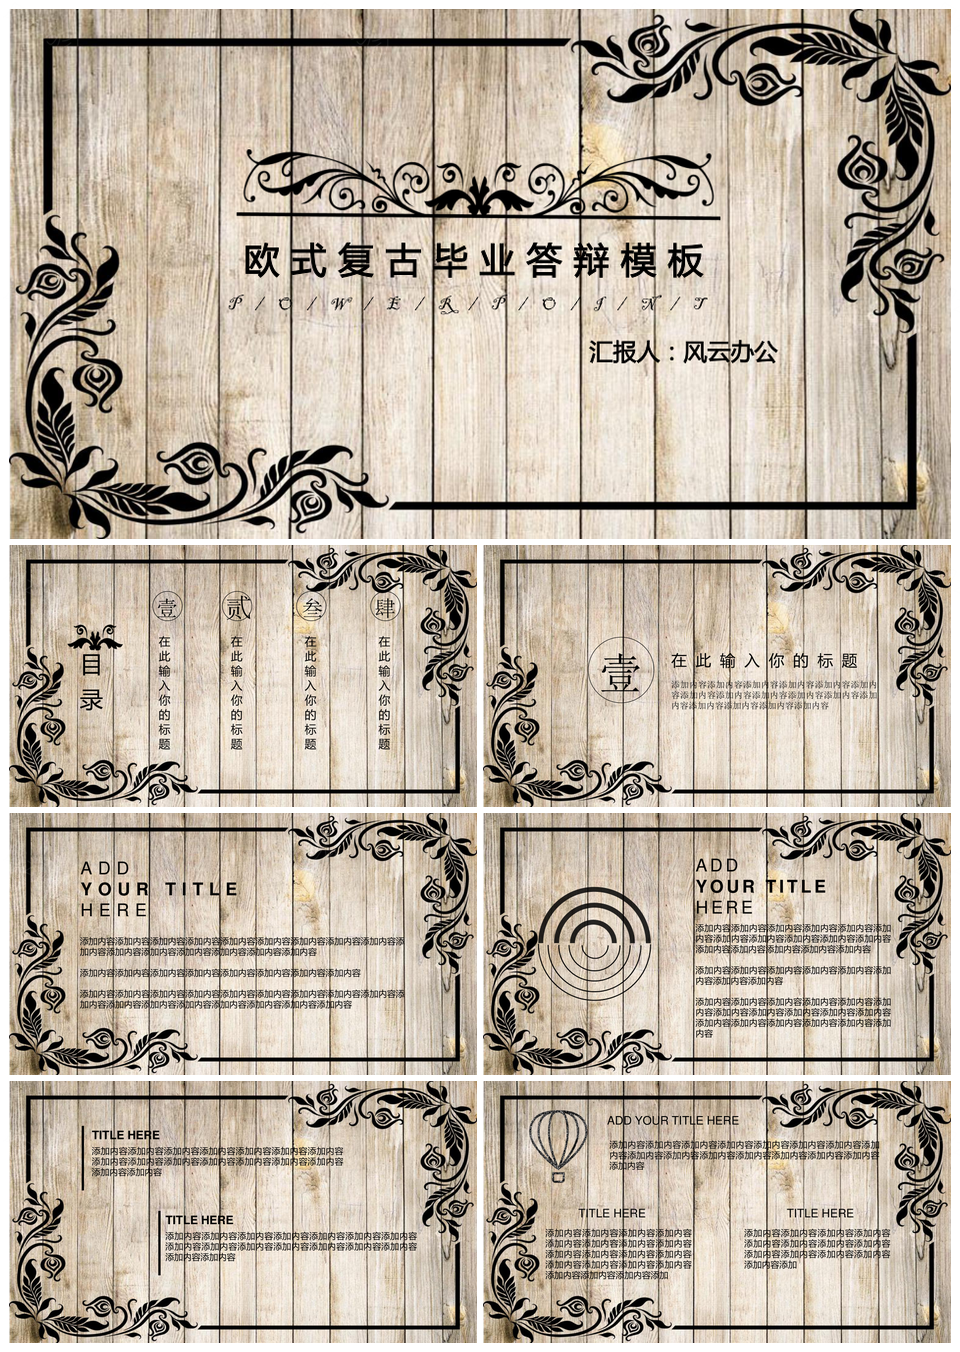 欧式复古毕业答辩模板
P / O / W / E / R / P / O / I / N / T
汇报人：风云办公
目录
壹
在此输入你的标题
贰
在此输入你的标题
叁
在此输入你的标题
肆
在此输入你的标题
壹
在此输入你的标题
添加内容添加内容添加内容添加内容添加内容添加内
容添加内容添加内容添加内容添加内容添加内容添加
内容添加内容添加内容添加内容添加内容
ADD
YOUR TITLE
HERE
添加内容添加内容添加内容添加内容添加内容添加内容添加内容添加内容添加内容添
加内容添加内容添加内容添加内容添加内容添加内容添加内容
添加内容添加内容添加内容添加内容添加内容添加内容添加内容添加内容
添加内容添加内容添加内容添加内容添加内容添加内容添加内容添加内容添加内容添
加内容添加内容添加内容添加内容添加内容添加内容添加内容添加内容
ADD
YOUR TITLE
HERE
添加内容添加内容添加内容添加内容添加内容添加
内容添加内容添加内容添加内容添加内容添加内容
添加内容添加内容添加内容添加内容添加内容
添加内容添加内容添加内容添加内容添加内容添加
内容添加内容添加内容
添加内容添加内容添加内容添加内容添加内容添加
内容添加内容添加内容添加内容添加内容添加内容
添加内容添加内容添加内容添加内容添加内容添加
内容
TITLE HERE
添加内容添加内容添加内容添加内容添加内容添加内容添加内容
添加内容添加内容添加内容添加内容添加内容添加内容添加内容
添加内容添加内容
TITLE HERE
添加内容添加内容添加内容添加内容添加内容添加内容添加内容
添加内容添加内容添加内容添加内容添加内容添加内容添加内容
添加内容添加内容
ADD YOUR TITLE HERE
添加内容添加内容添加内容添加内容添加内容添加内容添加内容添加
内容添加内容添加内容添加内容添加内容添加内容添加内容添加内容
添加内容
TITLE HERE
添加内容添加内容添加内容添加内容
添加内容添加内容添加内容添加内容
添加内容添加内容添加内容添加内容
添加内容添加内容添加内容添加内容
添加内容添加内容添加内容添加
TITLE HERE
添加内容添加内容添加内容添加内容
添加内容添加内容添加内容添加内容
添加内容添加内容添加内容添加内容
添加内容添加